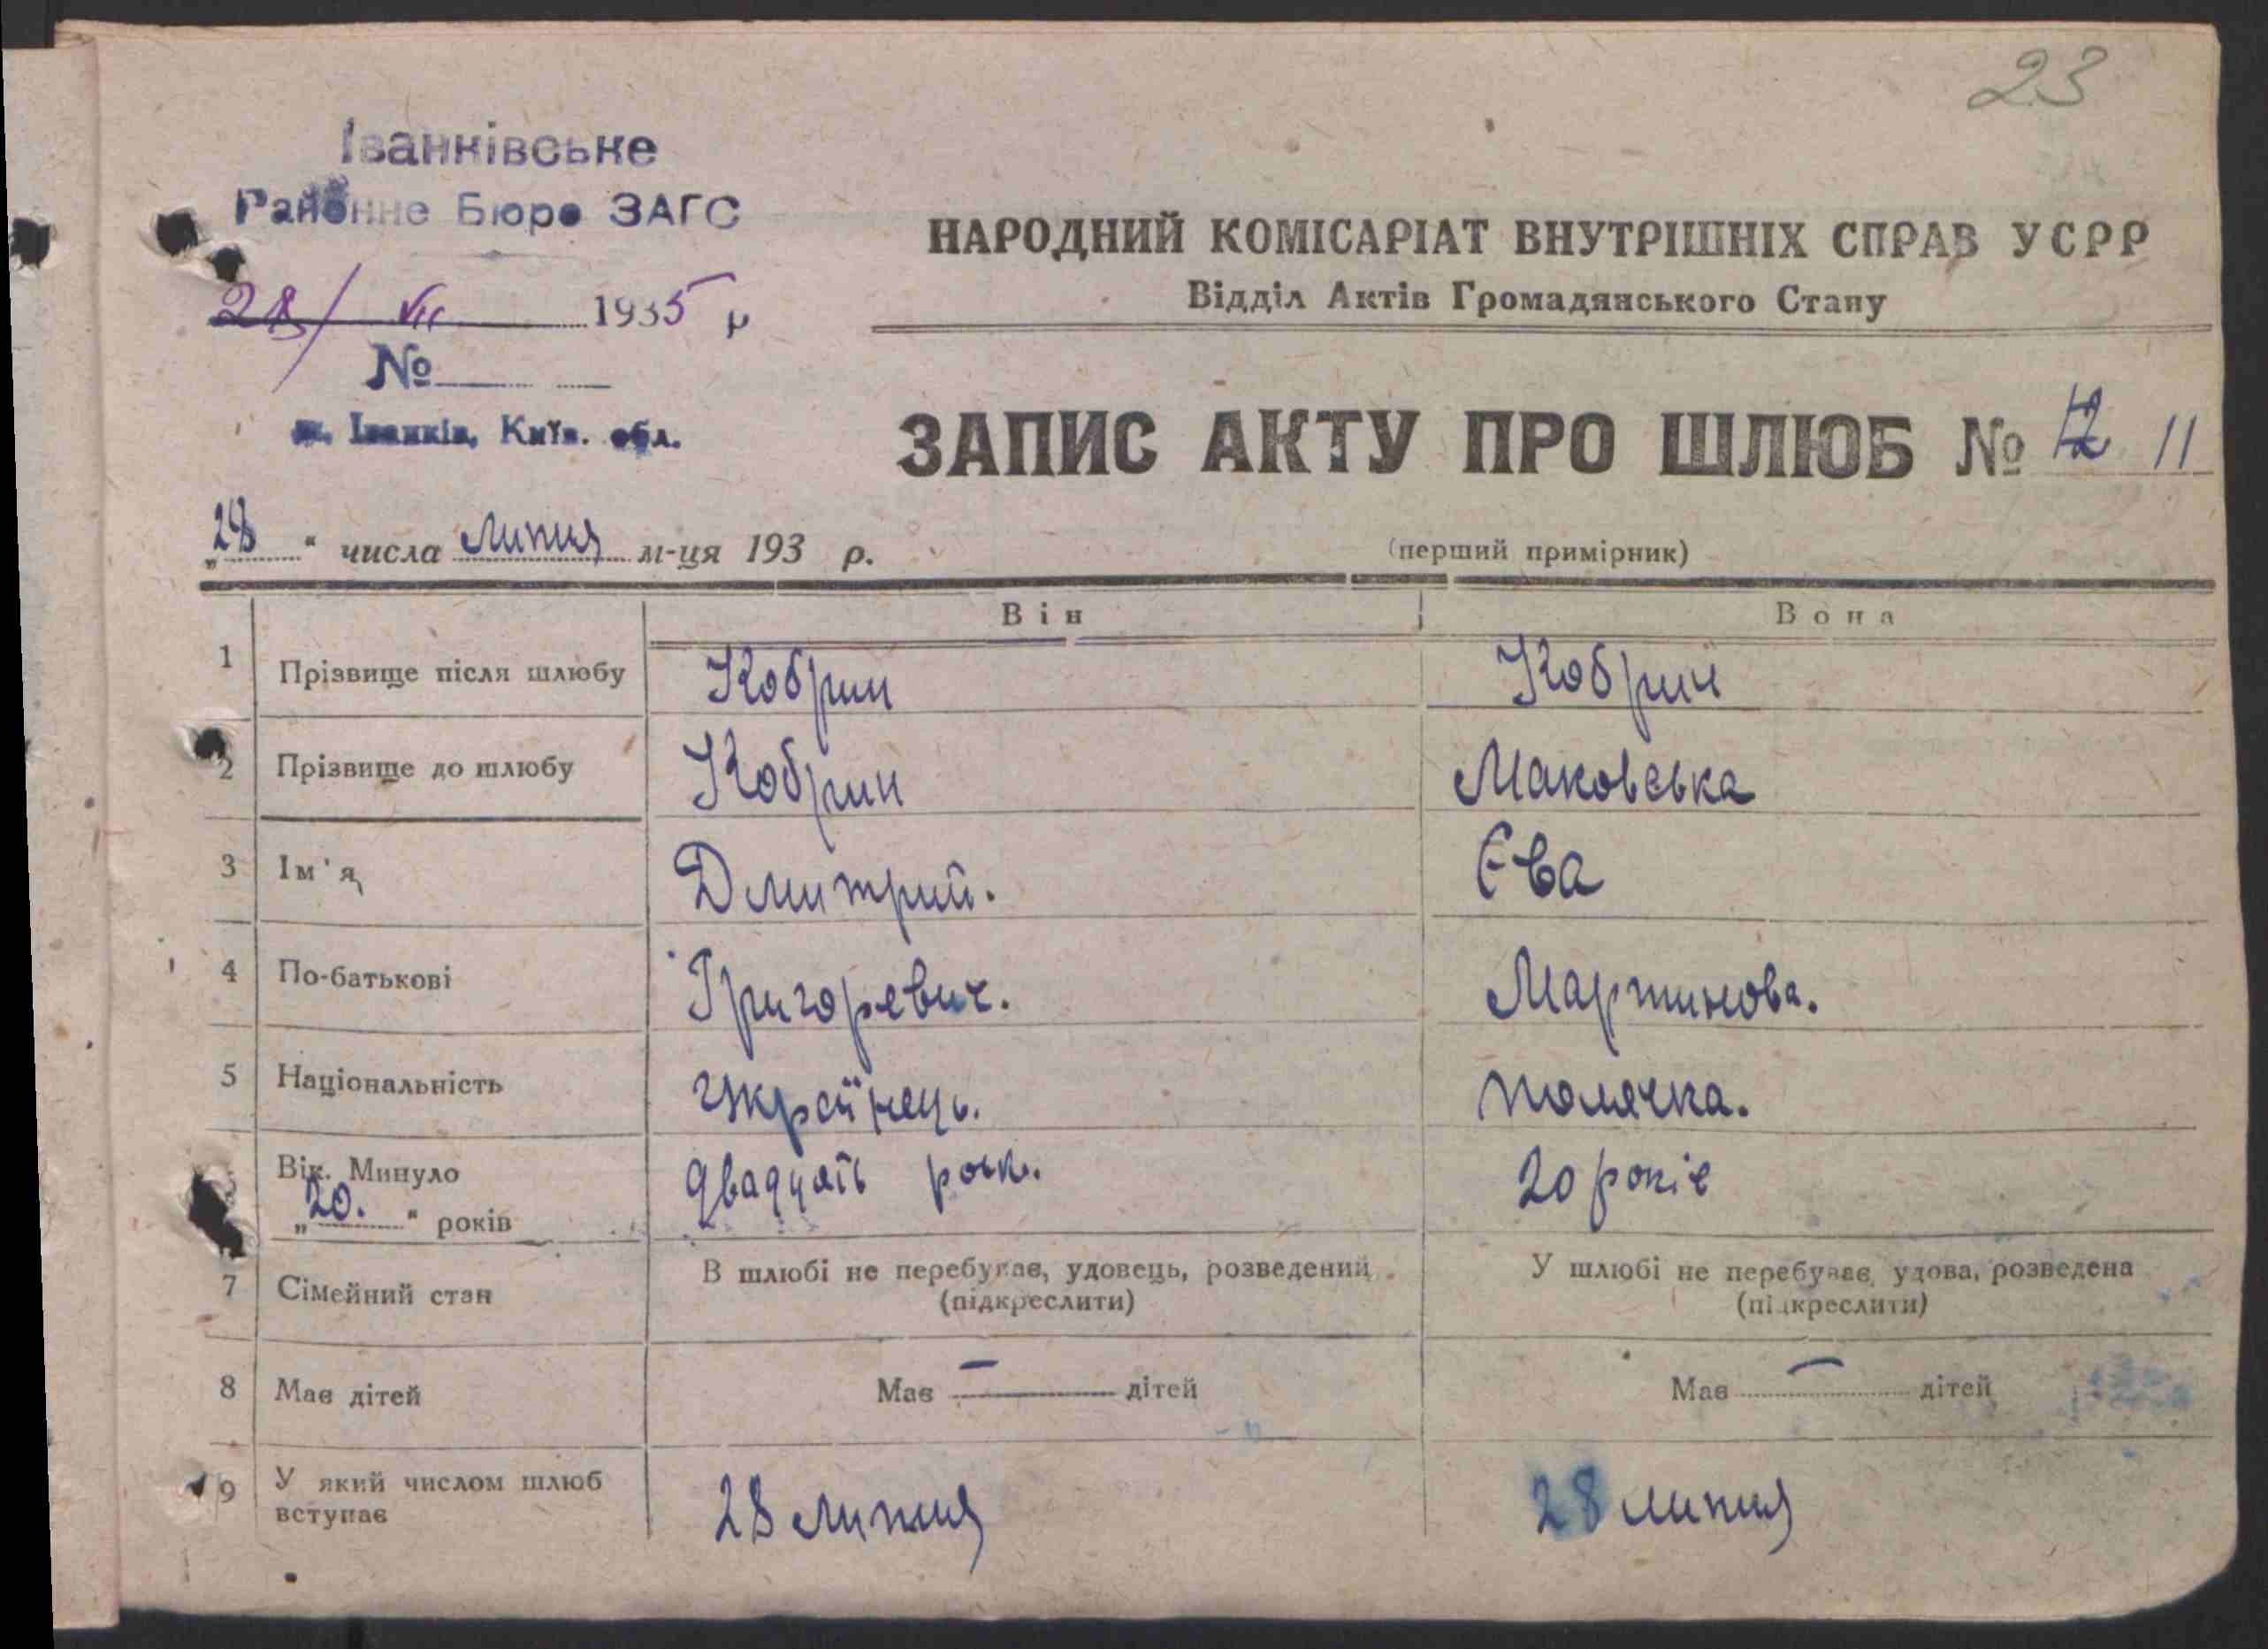 23
Іванківське
Районне Бюро ЗАГС
28/ VII 1935 р
№
м. Іванків, Київ. обл.
НАРОДНИЙ КОМІСАРІАТ ВНУТРІШНІХ СПРАВ УСРР
Відділ Актів Громадянського Стану
ЗАПИС АКТУ ПРО ШЛЮБ № 12 11
„28“ числа Липня м-ця 193 р.
(перший примірник)
Він Вона
1 Прізвище після шлюбу Кобрин Кобрин
2 Прізвище до шлюбу Кобрин Маковська
3 Ім'я Дмитрий. Єва
4 По-батькові Григоревич. Мартинова.
5 Національність Українець. Полячка.
Вік. Минуло
„20.“ років двадцять рок. 20 років
7 Сімейний стан В шлюбі не перебував, удовець, розведений У шлюбі не перебуває, удова, розведена
(підкреслити) (підкреслити)
8 Має дітей Має — дітей Має — дітей
9 У який числом шлюб
вступає 28 Липня 28 липня